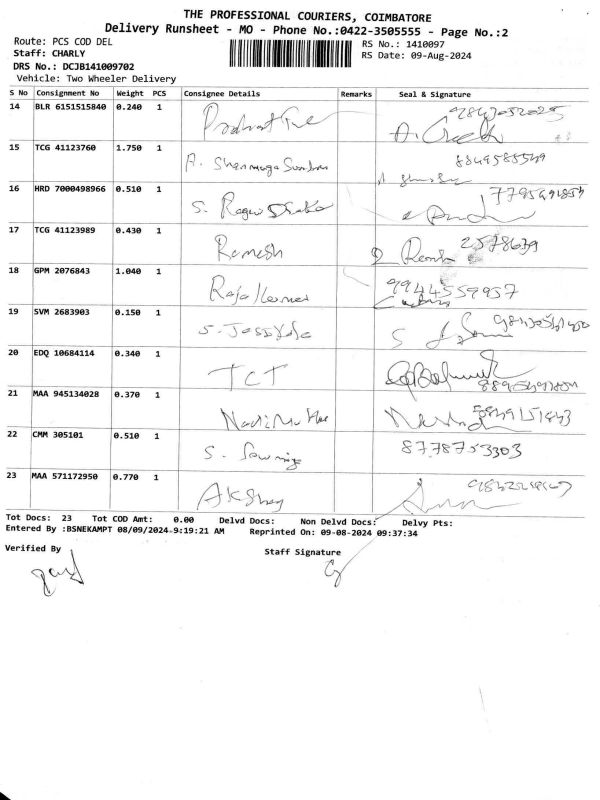 THE PROFESSIONAL COURIERS, COIMBATORE
Delivery Runsheet - MO - Phone No.:0422-3505555 - Page No.:2
Route: PCS COD DEL
Staff: CHARLY
DRS No.: DCJB141009702
Vehicle: Two Wheeler Delivery
RS No.: 1410097
RS Date: 09-Aug-2024
S No Consignment No Weight PCS Consignee Details Remarks Seal & Signature
14 BLR 6151515840 0.240 1
15 TCG 41123760 1.750 1 A. Shanmuga Sundar 8849585549
16 HRD 7000498966 0.510 1 S.
17 TCG 41123989 0.430 1 Ramesh 2578639
18 GPM 2076843 1.040 1 9944559957
19 SVM 2683903 0.150 1 S.
20 EDQ 10684114 0.340 1 TCT
21 MAA 945134028 0.370 1
22 CMM 305101 0.510 1 S. 8778753303
23 MAA 571172950 0.770 1 AKShay
Tot Docs: 23 Tot COD Amt: 0.00 Delvd Docs: Non Delvd Docs: Delvy Pts:
Entered By :BSNEKAMPT 08/09/2024-9:19:21 AM Reprinted On: 09-08-2024 09:37:34
Verified By
Staff Signature